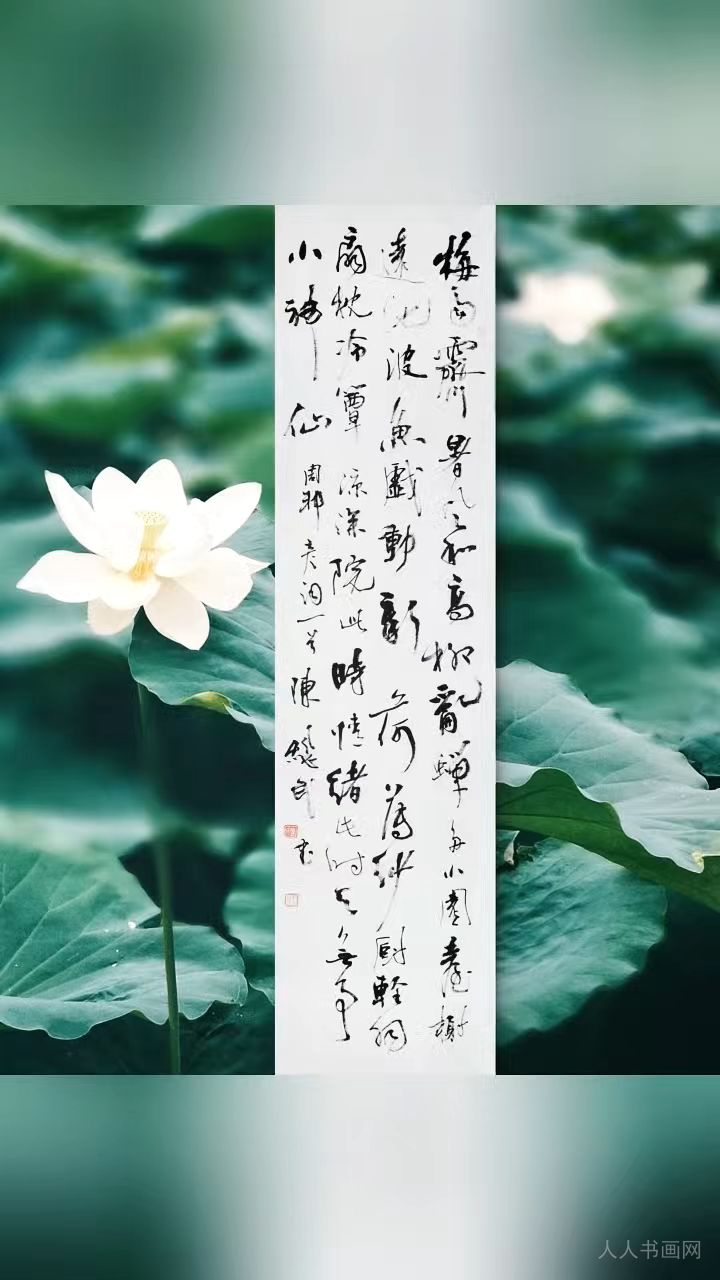 梅雨霽暑风和高柳亂蟬多小園臺榭
遠池波魚戲動新荷薄紗厨輕羽
扇枕冷簟涼深院此時情緒此时天無事
小神仙
周邦彦词一首 陳 武书
人人书画网